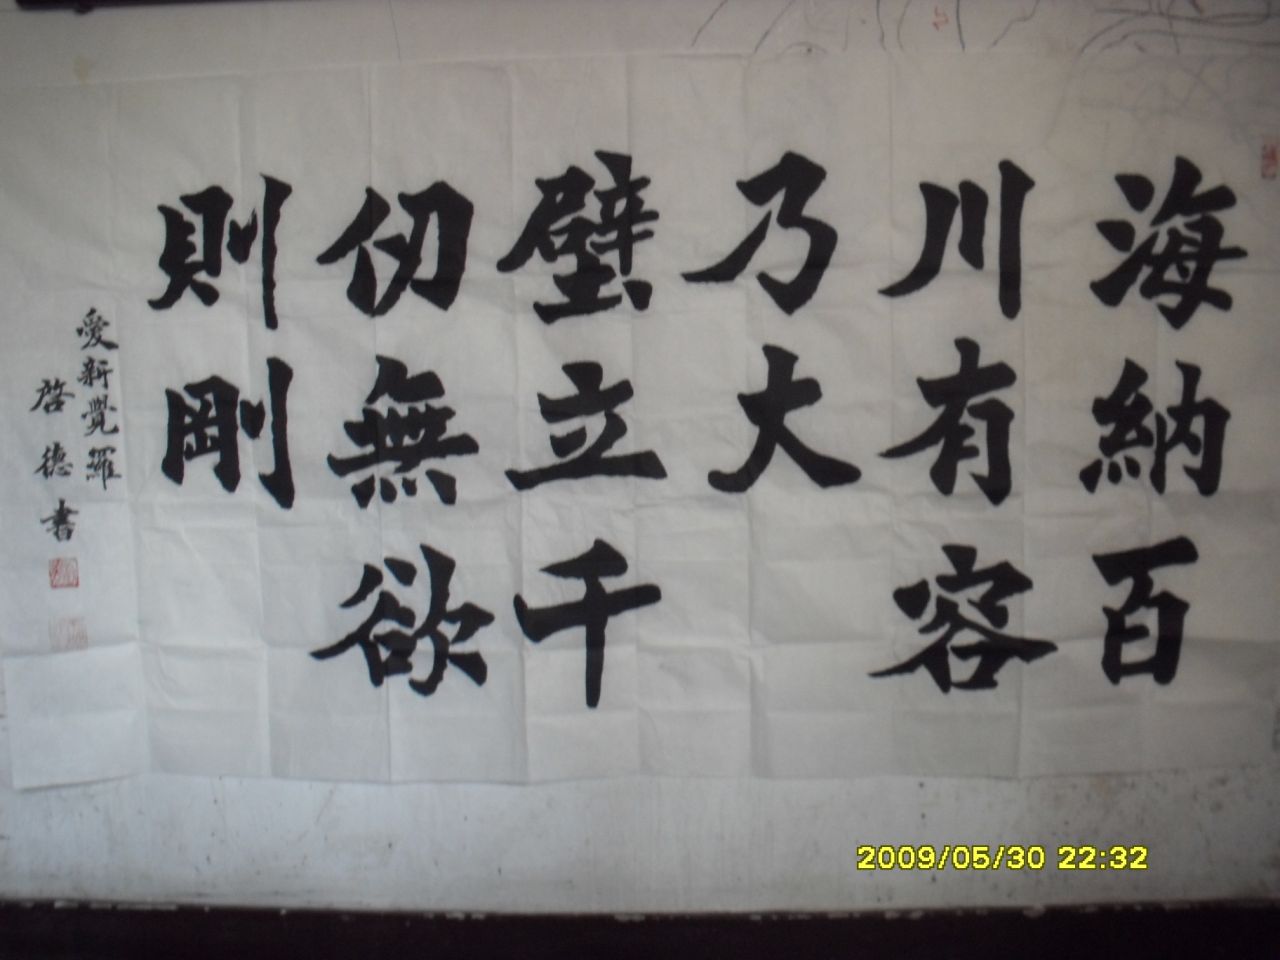 海納百
川有容
乃大
壁立千
仞無欲
則剛
愛新覺羅
啓德書
2009/05/30 22:32